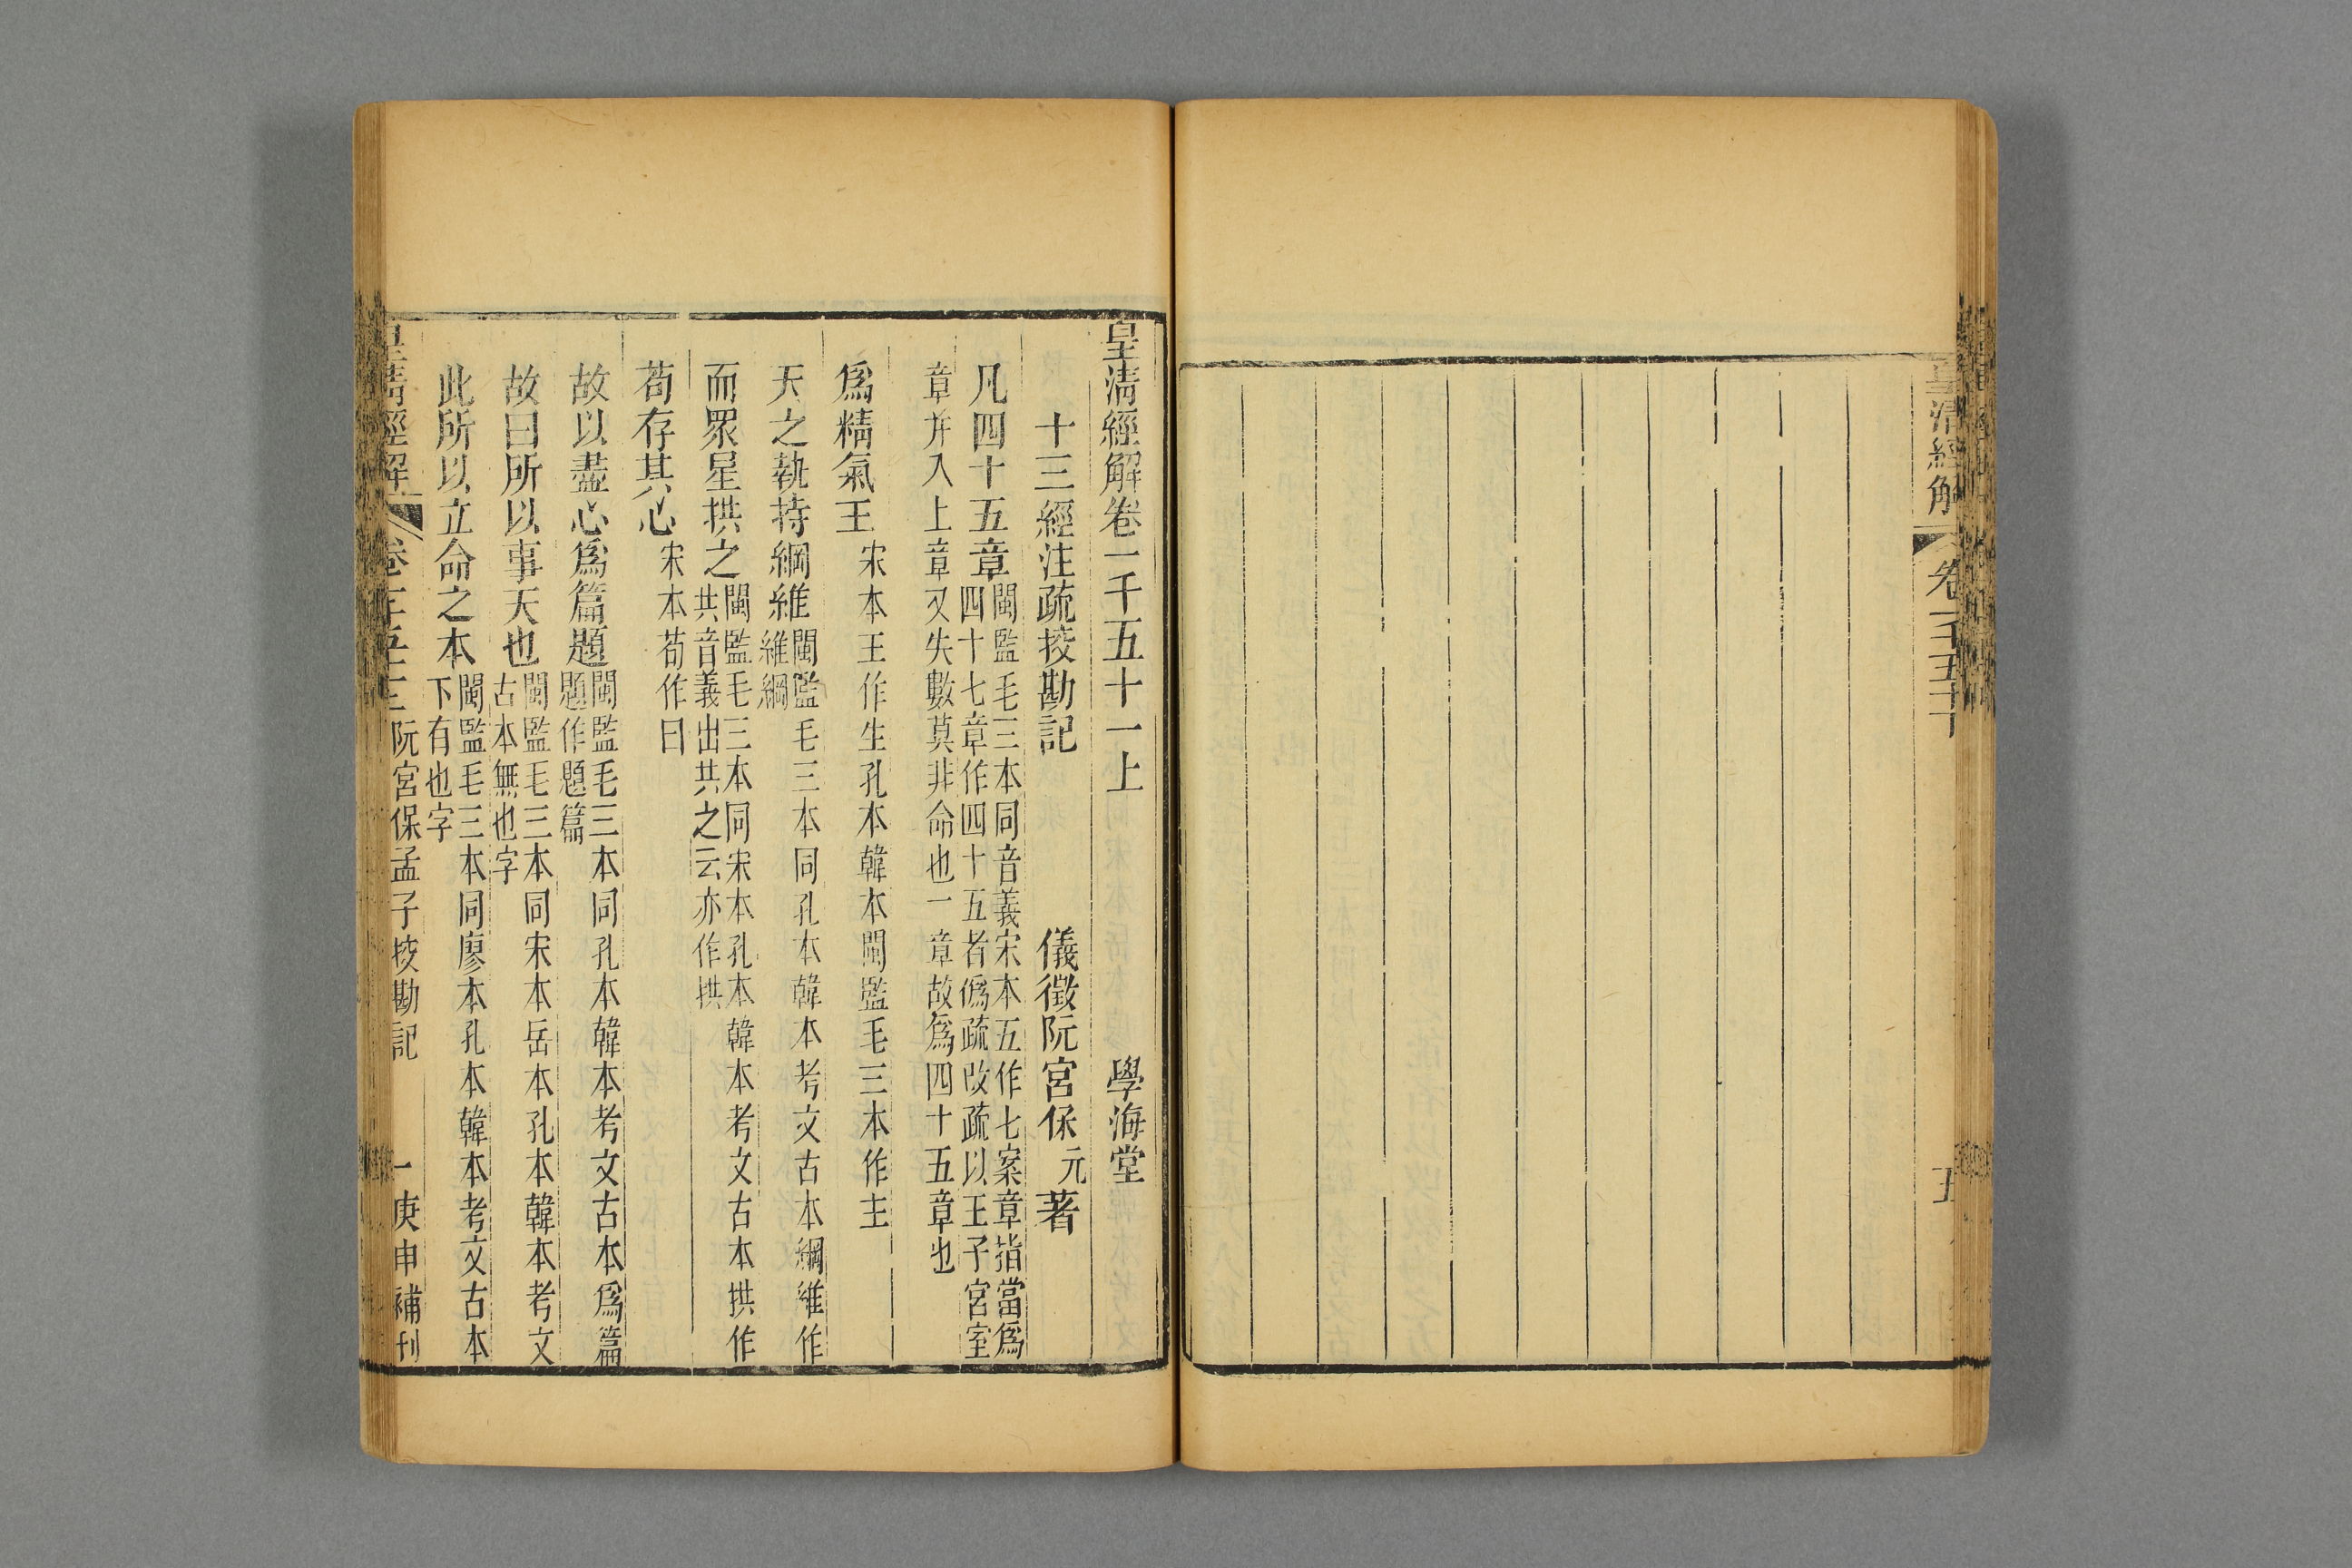 皇清經解 卷一千五十
五
皇清經解卷一千五十一上 學海堂
十三經注疏挍勘記 儀徵阮宮保元著
凡四十五章閩監毛三本同音義宋本五作七案章指當爲
四十七章作四十五者僞疏改疏以王子宮室
章并入上章又失數莫非命也一章故爲四十五章也
爲精氣王宋本王作生孔本韓本閩監毛三本作主
天之執持綱維閩監毛三本同孔本韓本考文古本綱維作
維綱
而眾星拱之閩監毛三本同宋本孔本韓本考文古本拱作
共音義出共之云亦作拱
苟存其心宋本苟作曰
故以盡心爲篇題閩監毛三本同孔本韓本考文古本爲篇
題作題篇
故曰所以事天也閩監毛三本同宋本岳本孔本韓本考文
古本無也字
此所以立命之本閩監毛三本同廖本孔本韓本考文古本
下有也字
皇清經解 阮宮保孟子挍勘記 一 庚申補刊